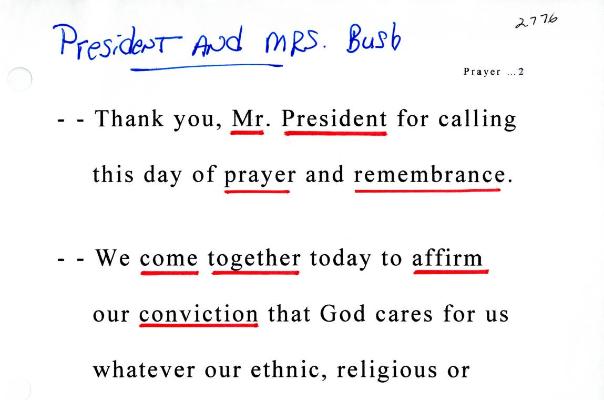 2776
President AND MRS. Bush
Prayer ...2
- - Thank you, Mr. President for calling
this day of prayer and remembrance.
- - We come together today to affirm
our conviction that God cares for us
whatever our ethnic, religious or